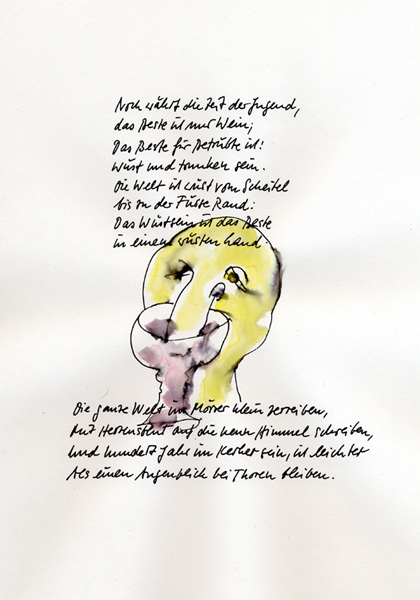 Noch währt die Zeit der Jugend,
das Beste ist nur Wein;
Das Beste für Betrübte ist:
Wüst und trunken sein.
Die Welt ist wüst vom Scheitel
bis zu der Füsse Rand:
Das Wüstsein ist das Beste
in einem wüsten Land.
Die ganze Welt im Mörser klein zerreiben,
Mit Herzensblut auf die neun Himmel schreiben,
Und hundert Jahr im Kerker sein, ist leichter
Als einen Augenblick bei Thoren bleiben.